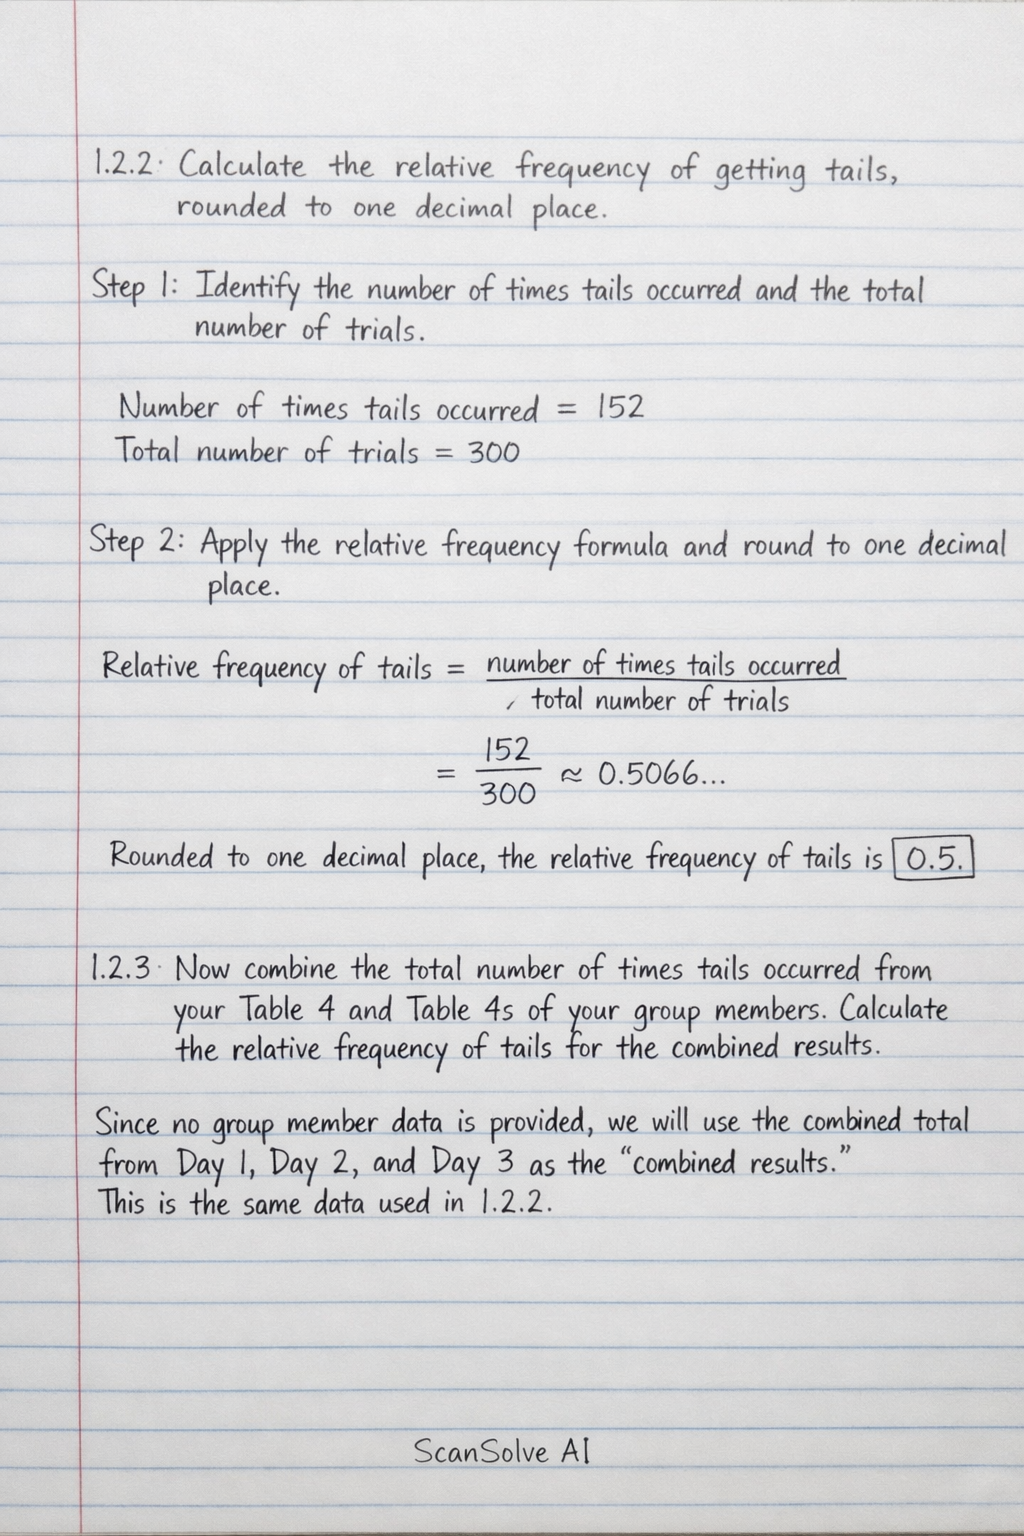 1.2.2. Calculate the relative frequency of getting tails,
rounded to one decimal place.
Step 1: Identify the number of times tails occurred and the total
number of trials.
Number of times tails occurred = 152
Total number of trials = 300
Step 2: Apply the relative frequency formula and round to one decimal
place.
Relative frequency of tails = number of times tails occurred
total number of trials
= 152/300 ≈ 0.5066...
Rounded to one decimal place, the relative frequency of tails is 0.5.
1.2.3. Now combine the total number of times tails occurred from
your Table 4 and Table 4s of your group members. Calculate
the relative frequency of tails for the combined results.
Since no group member data is provided, we will use the combined total
from Day 1, Day 2, and Day 3 as the “combined results.”
This is the same data used in 1.2.2.
ScanSolve AI